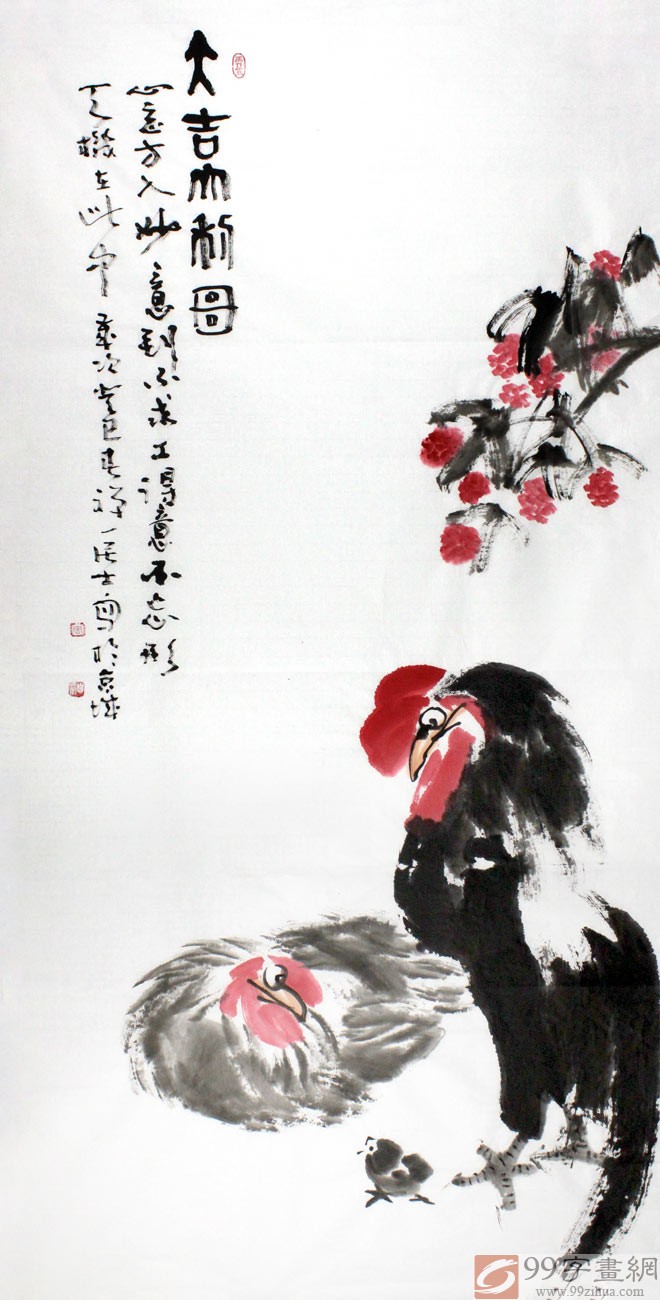 大吉大利圖
心意方入妙意到不求工得意不忘形
天機在此中歲次癸巳春禪一居士寫於京城
99字畫網
www.99zihua.com